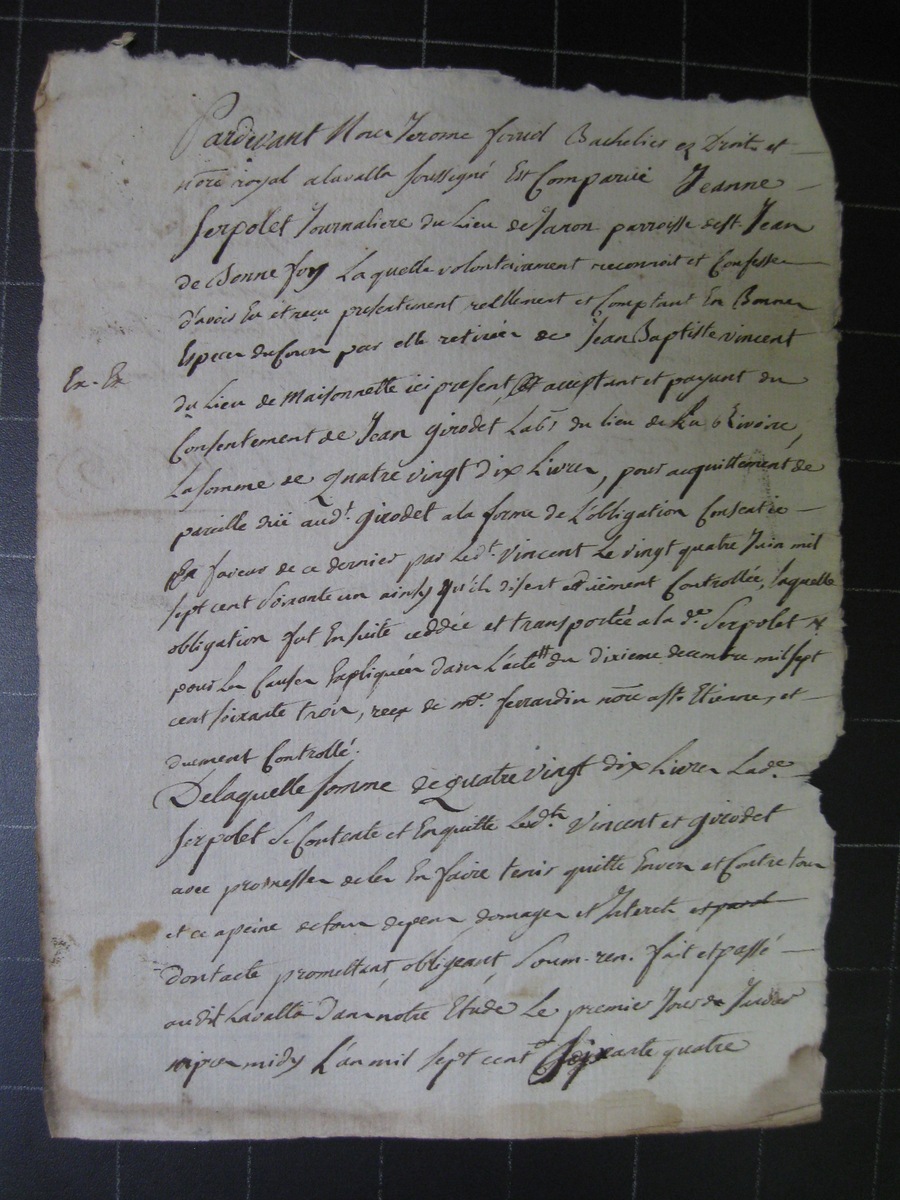 Pardevant Nous Jerome forud Bachelier ez Droits et
nore royal a lavalla soussigné Est Comparüe Jeanne
Serpolet Journaliere du Lieu de Janon parroisse de St Jean
de Bonne fon Laquelle volontairement reconnoit et Confesse
d'avoir Eu et reçu presentement réellement et Comptant En Bonnes
Especes du Cours par elle retirées de Jean Baptiste vincent
Ex - Ex
du Lieu de Maisonnette ici present et acceptant et payant du
Consentement de Jean girodet Labr du lieu de La Rivoire,
La somme de Quatre vingt dix Livres, pour acquittement de
pareille düe audt girodet a la forme de L'obligation Consentie
En faveur de ce dernier par Ledt Vincent Le vingt quatre Juin mil
sept cent soixante un ainsy qu'ils disent et düement Controllée, laquelle
obligation fut Ensuite ceddée et transportée a la de Serpolet
pour Les Causes Expliquées dans L'acte du dixieme decembre mil sept
cent soixante trois, reçu de me ferrandin nore a St Etienne, et
duement Controllé.
De laquelle somme de Quatre vingt dix Livres Lade
Serpolet se Contente et En quitte Lesdts Vincent et girodet
avec promesse de les En faire tenir quitte Envers et Contre tous
et ce a peine de tous depens domages et Interets
dont acte promettant, obligeant, soum. ren. fait et passé
audit Lavalla dans notre Etude Le premier Jour de
apres midy L'an mil sept cent soixante quatre